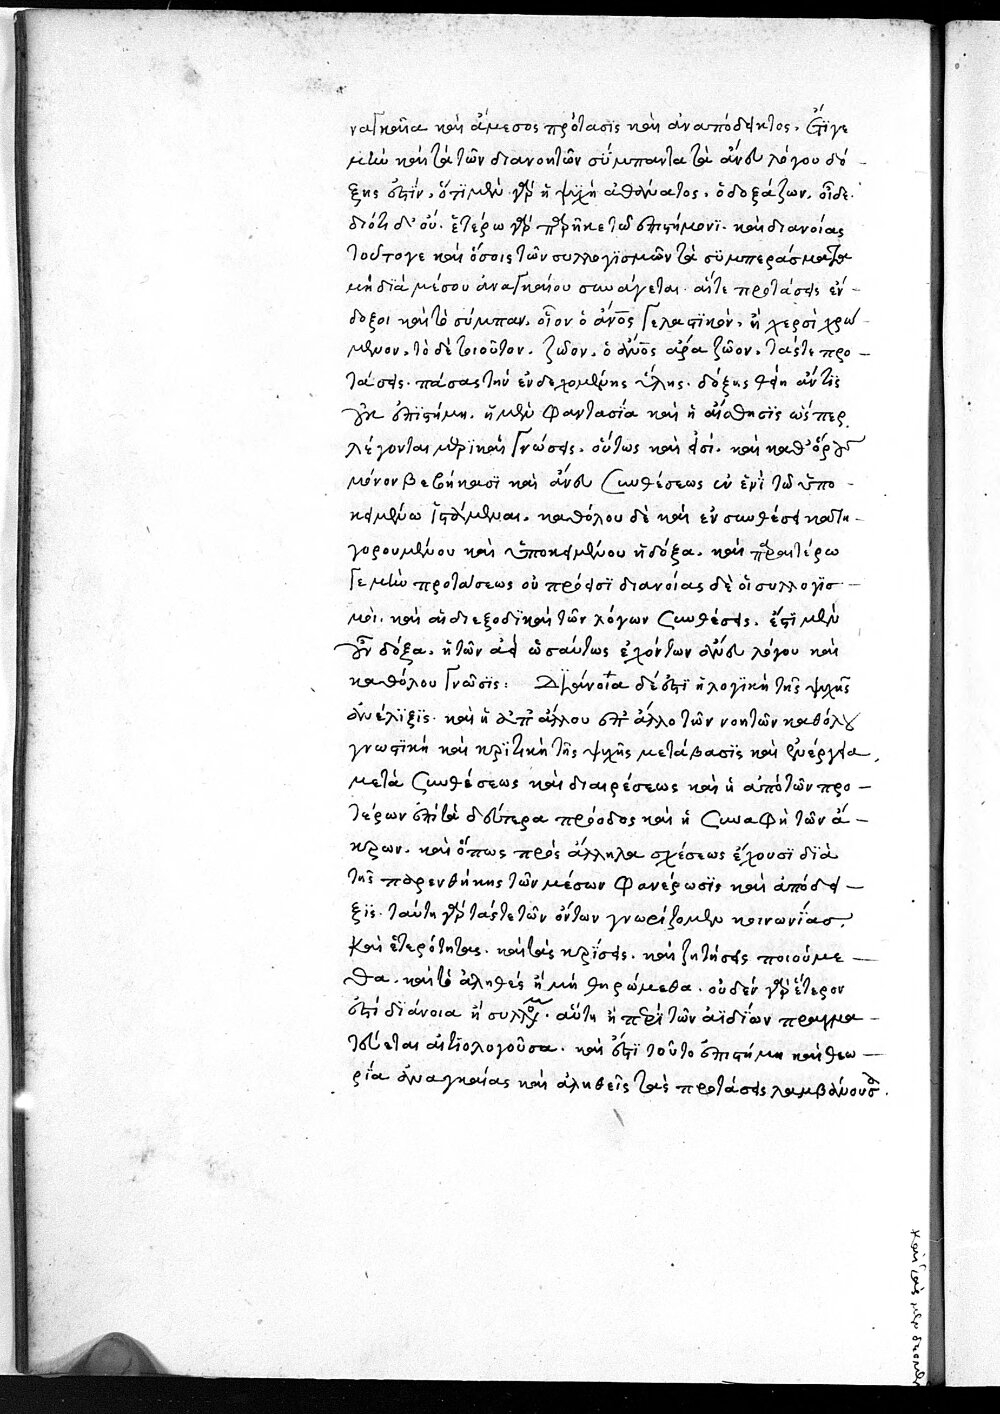 ναγκαία καὶ ἄμεσος πρότασϊς καὶ ἀναπόδεικτος. ἔϊγε
μὴν καὶ τὰ τῶν διανοητῶν σύμπαντα τὰ ἄνευ λόγου δό -
ξης ἐστίν. ὅτι μὲν γὰρ ἡ ψϋχὴ ἀθάνατος. ὁ δοξάζων. οἶδε.
διότι δ' οὔ. ἑτέρω γὰρ προσήκει τῶ ἐπιστήμονϊ. καὶ διανοίας
τοῦτό γε καὶ ὅσοις τῶν συλλογϊσμῶν τὰ συμπεράσματα
μὴ δϊὰ μέσου ἀναγκαίου συνάγεται. αἵτε προτάσεις ἔν -
δοξοι καὶ τὸ σύμπαν. οἷον ὁ ἄνος γελαστϊκὸν. ἢ χερσὶ χρώ -
μενον. τὸ δὲ τοιοῦτον. ζῶον. ὁ ἄνος ἄρα ζῶον. τάς τε προ -
τάσεις. πάσας τὴν ἐνδεχομένης ὕλης. δόξης θείη ἄν τϊς
οὐκ ἐπιστήμη. ἡ μὲν φαντασία καὶ ἡ αἴσθησϊς ὥσπερ
λέγονται μερϊκαὶ γνώσεις. οὕτως καὶ εἰσί. καὶ καθ' ὅρου
μόνον βεβήκασϊ καὶ ἄνευ συνθέσεως ἐν ἑνὶ τῶ ὑπο -
κειμένω ἱστάμεναι. καθόλου δὲ καὶ ἐν συνθέσει κατη -
γορουμένου καὶ ὑποκειμένου ἡ δόξα. καὶ περαιτέρω
γε μὴν προτάσεως οὐ πρόεισϊ διανοίας δὲ οἱ συλλογϊσ -
μοὶ. καὶ αἱ διεξοδϊκαὶ τῶν λόγων συνθέσεις. ἔστϊ μὲν
οὖν δόξα. ἡ τῶν ἀεὶ ὡσαύτως ἐχόντων ἄνευ λόγου καὶ
καθόλου γνῶσϊς: Δϊάνοια δέ ἐστϊ ἡ λογϊκὴ τῆς ψυχῆς
ἀνέλϊξϊς. καὶ ἡ ἀπ' ἄλλου ἐπ' ἄλλο τῶν νοητῶν καθόλου
γνωστϊκὴ καὶ κρϊτϊκὴ τῆς ψυχῆς μετάβασϊς καὶ ἐνέργεια
μετὰ συνθέσεως καὶ διαιρέσεως καὶ ἡ ἀπὸ τῶν προ -
τέρων ἐπὶ τὰ δεύτερα πρόοδος καὶ ἡ συναφὴ τῶν ἄ -
κρων. καὶ ὅπως πρὸς ἄλληλα σχέσεως ἔχουσϊ δϊὰ
τῆς παρενθήκης τῶν μέσων φανέρωσϊς καὶ ἀπόδει -
ξϊς. ταύτη γὰρ τάς τε τῶν ὄντων γνωρίζομεν κοινωνίας.
καὶ ἑτερότητας. καὶ τὰς κρϊσεις. καὶ ζητήσεις ποιούμε -
θα. καὶ τὸ ἀληθὲς ἢ μὴ θηρώμεθα. οὐδέν γὰρ ἕτερον
ἐστὶ δϊάνοια ἢ συλλογ. αὕτη ἢ περὶ τῶν ἀϊδίων πραγμα -
τεύεται αἰτϊολογοῦσα. καὶ ἔστϊ τοῦτο ἐπιστήμη καὶ θεω -
ρία ἀναγκαίας καὶ ἀληθεῖς τὰς προτάσεις λαμβάνουσα.